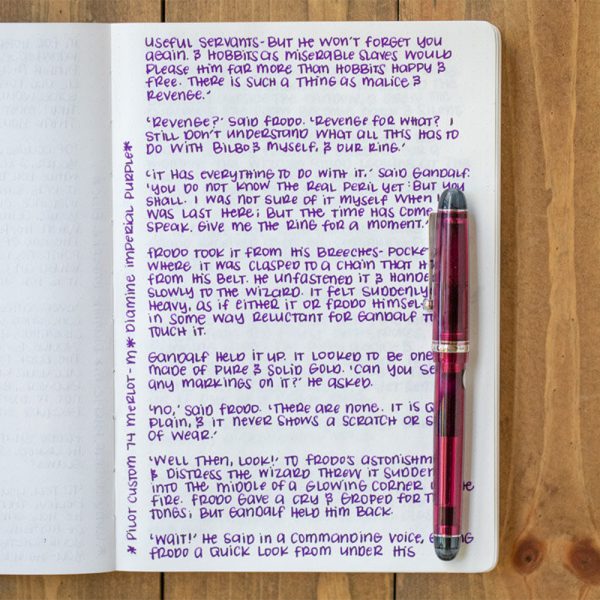 useful servants - but he won't forget you
again. & hobbits as miserable slaves would
please him far more than hobbits happy &
free. There is such a thing as malice &
revenge.'
'Revenge?' said Frodo. 'Revenge for what? I
still don't understand what all this has to
do with Bilbo & myself, & our ring.'
'It has everything to do with it,' said Gandalf.
'You do not know the real peril yet; but you
shall. I was not sure of it myself when
was last here; but the time has come
speak. Give me the ring for a moment.'
Frodo took it from his breeches- pocke
where it was clasped to a chain that h
from his belt. He unfastened it & hande
slowly to the wizard. It felt suddenly
heavy, as if either it or Frodo himsel
in some way reluctant for Gandalf t
touch it.
Gandalf held it up. It looked to be
made of pure & solid gold. 'Can you se
any markings on it?' he asked.
'No,' said Frodo. 'There are none. It is
plain, & it never shows a scratch or s
of wear.'
'Well then, look!' To Frodo's astonishm
& distress the wizard threw it sudden
into the middle of a glowing corner
fire. Frodo gave a cry & groped for t
tongs; but Gandalf held him back.
'Wait!' he said in a commanding voice,
Frodo a quick look from under his
* Pilot Custom 74 Merlot - M * Diamine Imperial Purple *